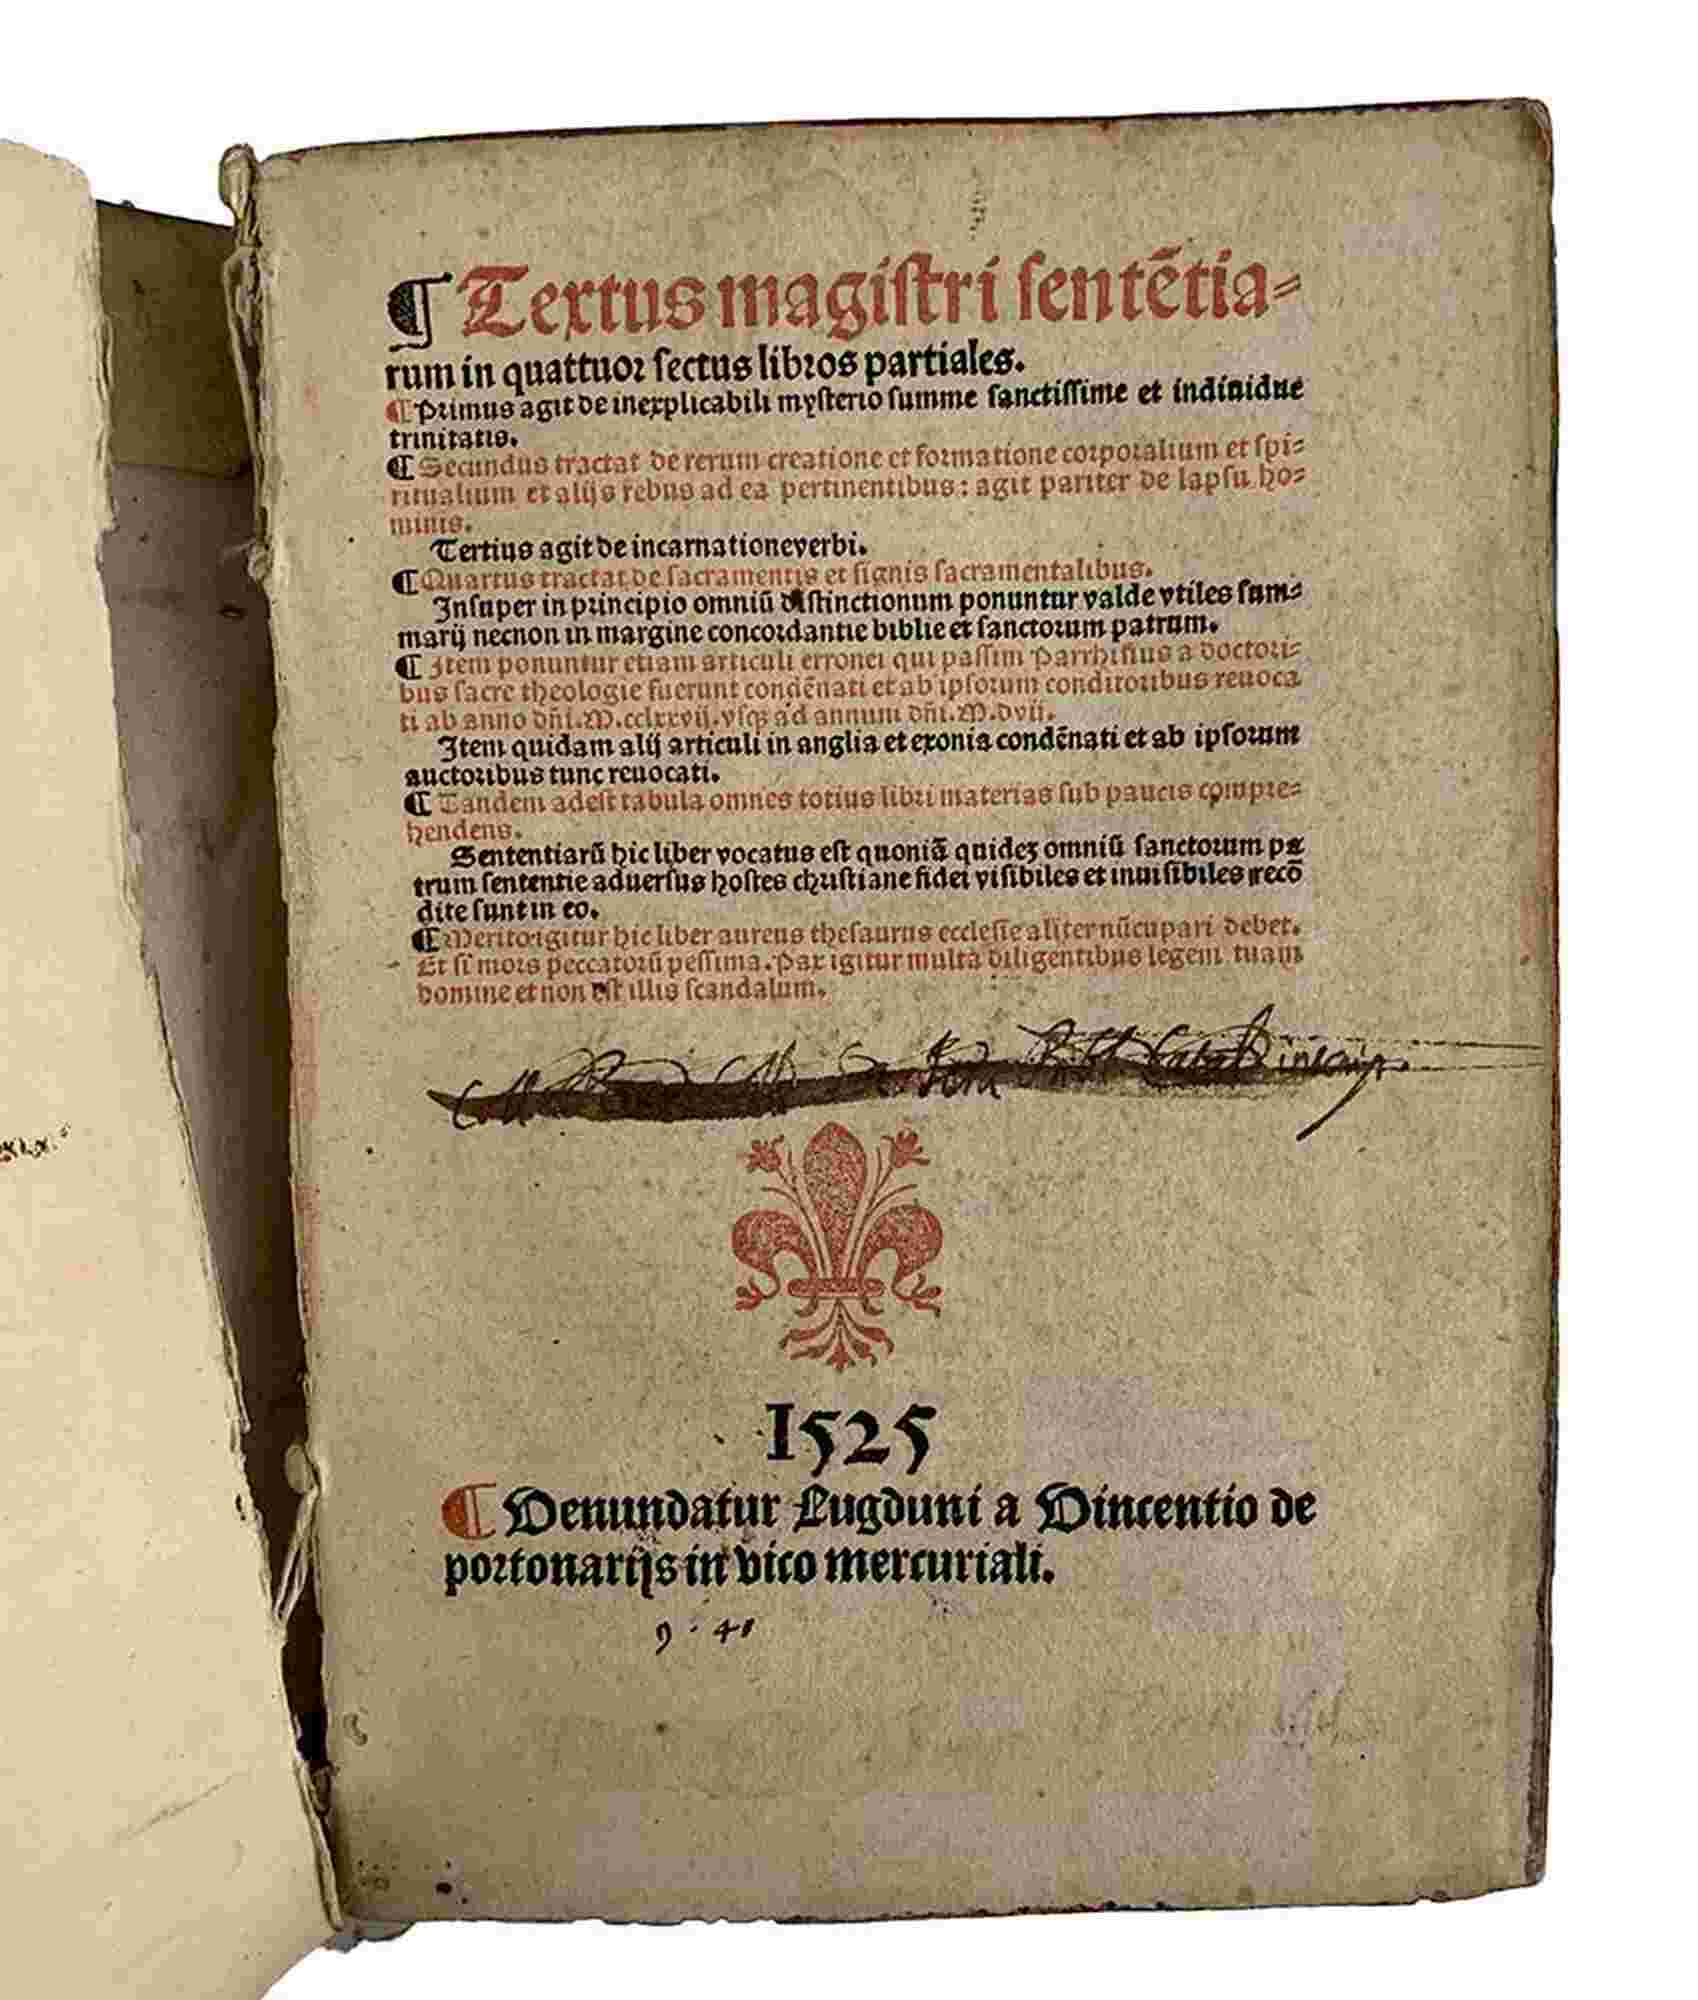 ¶ Textus magistri sentētia-
rum in quattuor sectus libros partiales.
¶ Primus agit de inexplicabili mysterio summe sanctissime et indiuidue
trinitatis.
¶ Secundus tractat de rerum creatione et formatione corporalium et spi-
ritualium et alijs rebus ad ea pertinentibus: agit pariter de lapsu ho-
minis.
Tertius agit de incarnatione verbi.
¶ Quartus tractat de sacramentis et signis sacramentalibus.
Insuper in principio omniū distinctionum ponuntur valde vtiles sum-
marij necnon in margine concordantie biblie et sanctorum patrum.
¶ Item ponuntur etiam articuli erronei qui passim Parrhisius a doctori-
bus sacre theologie fuerunt condēnati et ab ipsorum conditoribus reuoca
ti ab anno dñi. M.cclxxvij. vsqꝫ ad annum dñi. M.dvij.
Item quidam alij articuli in anglia et exonia condēnati et ab ipsorum
auctoribus tunc reuocati.
¶ Tandem adest tabula omnes totius libri materias sub paucis compre-
hendens.
Sententiarū hic liber vocatus est quoniā quideꝫ omniū sanctorum pa
trum sententie aduersus hostes christiane fidei visibiles et inuisibiles recō
dite sunt in eo.
¶ Merito igitur hic liber aureus thesaurus ecclesie aliter nūcupari debet.
Et si mors peccatorū pessima. Pax igitur multa diligentibus legem tuam
domine et non est illis scandalum.
1525
¶ Venundatur Lugduni a Vincentio de
portonarijs in vico mercuriali.
9 · 41